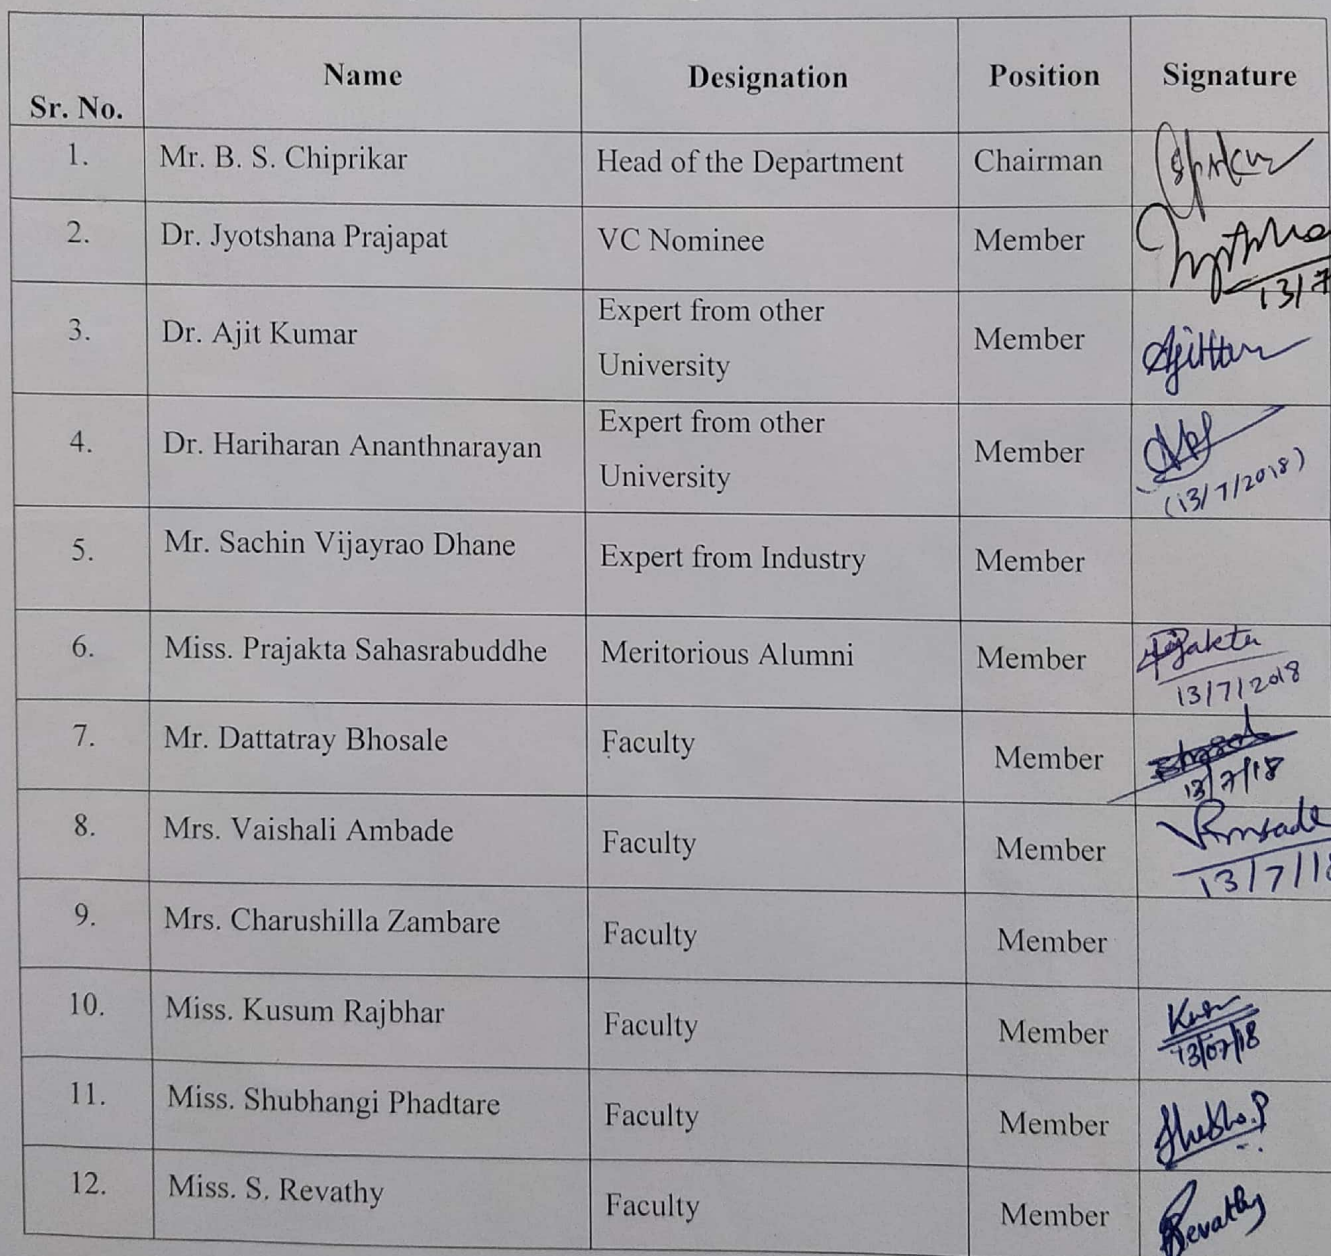 Sr. No. Name Designation Position Signature
1. Mr. B. S. Chiprikar Head of the Department Chairman
2. Dr. Jyotshana Prajapat VC Nominee Member
13/7
3. Dr. Ajit Kumar Expert from other University Member
4. Dr. Hariharan Ananthnarayan Expert from other University Member
(13/7/2018)
5. Mr. Sachin Vijayrao Dhane Expert from Industry Member
6. Miss. Prajakta Sahasrabuddhe Meritorious Alumni Member Prajakta
13/7/2018
7. Mr. Dattatray Bhosale Faculty Member
13/7/18
8. Mrs. Vaishali Ambade Faculty Member
13/7/18
9. Mrs. Charushilla Zambare Faculty Member
10. Miss. Kusum Rajbhar Faculty Member
13/07/18
11. Miss. Shubhangi Phadtare Faculty Member
12. Miss. S. Revathy Faculty Member Revathy